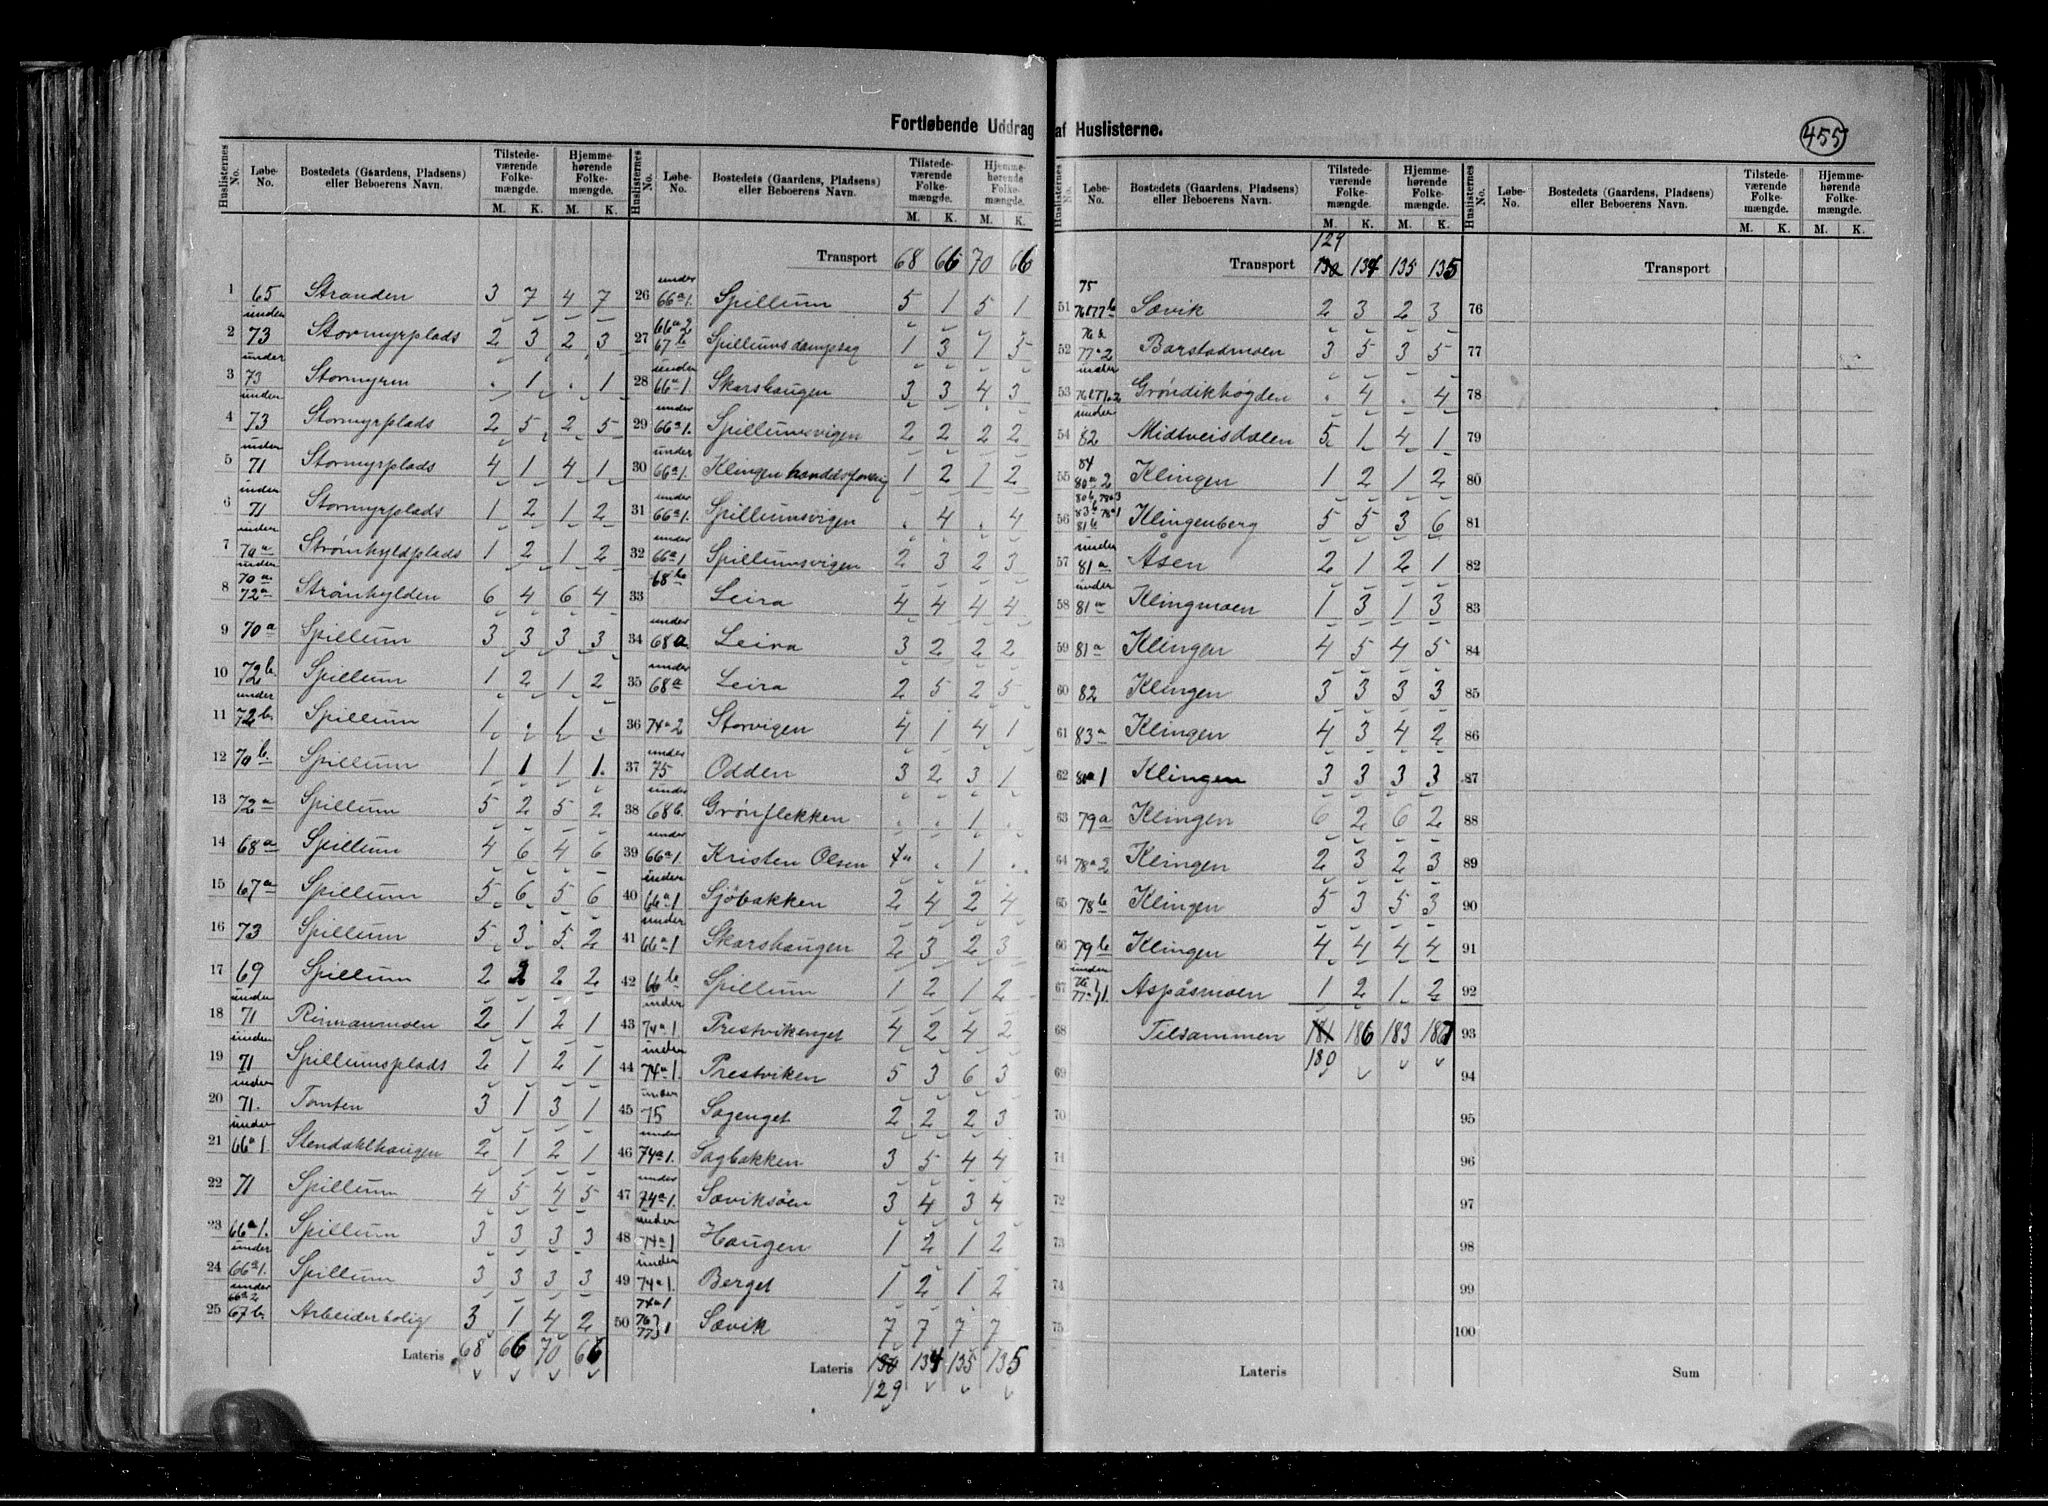 Fortløbende Uddrag af Huslisterne.
455
Huslisternes No. | Løbe-No. | Bostedets (Gaardens, Pladsens) eller Beboerens Navn. | Tilstedeværende Folkemængde. M. K. | Hjemmehørende Folkemængde. M. K.
1 65 Stranden 3 7 4 7
2 under 73 Stormyrplads 2 3 2 3
3 under 73 Stormyren . 1 . 1
4 under 73 Stormyrplads 2 5 2 5
5 under 71 Stormyrplads 4 1 4 1
6 under 71 Stormyrplads 1 2 1 2
7 under 70a Strømhyldplads 1 2 1 2
8 under 70a 72a Strømhylden 6 4 6 4
9 70a Spillum 3 3 3 3
10 72b. Spillum 1 2 1 2
11 under 72b. Spillum 1 . 1 .
12 70b. Spillum 1 1 1 1.
13 72a Spillum 5 2 5 2
14 68a Spillum 4 6 4 6
15 67a Spillum 5 6 5 6
16 73 Spillum 5 3 5 2
17 69 Spillum 2 2 2 2
18 under 71 2 1 2 1
19 under 71 Spillumsplads 2 1 2 1
20 under 71. Tomten 3 1 3 1
21 under 66a1. Stendahlhaugen 2 1 2 1
22 71 Spillum 4 5 4 5
23 66a1. Spillum 3 3 3 3
24 under 66a1. Spillum 3 3 3 3
25 under 66a2 67b. Arbeiderbolig 3 1 4 2
Lateris 68 66 70 66
Transport 68 66 70 66
26 under 66a1. Spillum 5 1 5 1
27 66a2 67b Spillums dampsag 1 3 1 3
28 under 66a1 Skarshaugen 3 3 4 3
29 under 66a1. Spillumsvigen 2 2 2 2
30 under 66a1 Klingen handelsforenig 1 2 1 2
31 under 66a1. Spillumsvigen . 4 . 4
32 under 66a1 Spillumsvigen 2 3 2 3
33 68b Leira 4 4 4 4
34 under 68a Leira 3 2 2 2
35 under 68a Leira 2 5 2 5
36 74a2 Storvigen 4 1 4 1
37 under 75 Odden 3 2 3 1
38 under 68b. Grønflekken . . 1 .
39 under 66a1 Kristen Olsen . 1 .
40 under 66a1 Sjøbakken 2 4 2 4
41 under 66a1 Skarshaugen 2 3 2 3
42 66b Spillum 1 2 1 2
43 under 74a1. Prestvikenget 4 2 4 2
44 under 74a1. Prestviken 5 3 6 3
45 under 75 Sagenget 2 2 2 3
46 under 74a1. Sagbakken 3 5 4 4
47 under 74a1. Sæviksøen 3 4 3 4
48 under 74a1 Haugen 1 2 1 2
49 under 74a1. Berget 1 2 1 2
50 74a1 76 77 1 Sævik 7 7 7 7
Lateris 130 134 135 135
129
129
Transport 130 134 135 135
51 75 76 77b Sævik 2 3 2 3
52 76a 77a2 Barstadmoen 3 5 3 5
53 under Grøndikhøgden . 4 . 4
54 under 82 Midtveisdalen 5 1 4 1
55 84 80a2 Klingen 1 2 1 2
56 80b, 78a3 83b 78a1 81b Klingenberg 5 5 3 6
57 under 81a Åsen 2 1 2 1
58 under 81a Klingmoen 1 3 1 3
59 81a Klingen 4 5 4 5
60 82 Klingen 3 3 3 3
61 83a Klingen 4 3 4 2
62 80a1 Klingen 3 3 3 3
63 79a Klingen 6 2 6 2
64 78a2 Klingen 2 3 2 3
65 78b Klingen 5 3 5 3
66 79b Klingen 4 4 4 4
67 under 76 77a 1. Aspåsmoen 1 2 1 2
68 Tilsammen 181 186 183 187
180
69
70
71
72
73
74
75
Lateris
Transport
76
77
78
79
80
81
82
83
84
85
86
87
88
89
90
91
92
93
94
95
96
97
98
99
100
Sum